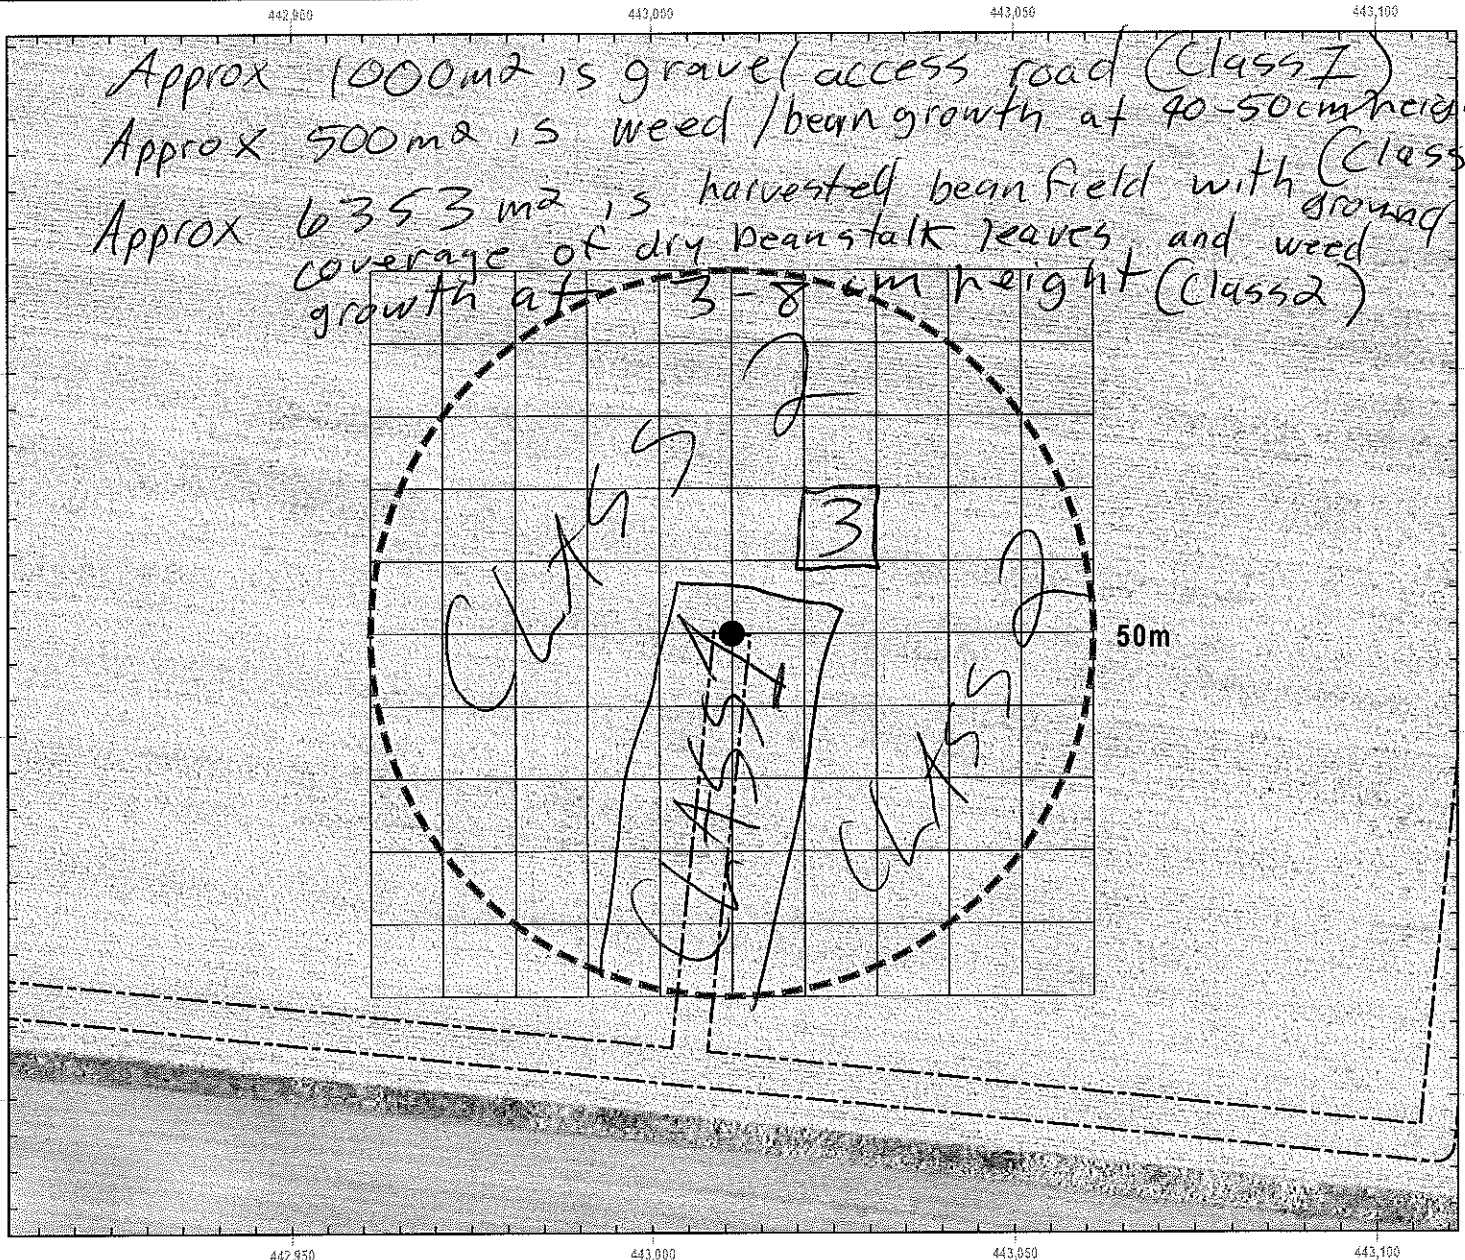 442,950 443,000 443,050 443,100
Approx 1000m2 is gravel access road (Class 1)
Approx 500m2 is weed/bean growth at 40-50cm heig
(Class
Approx 6353m2 is harvested bean field with ground
coverage of dry beanstalk leaves, and weed
growth at 3-8 cm height (Class2)
CLASS 2
3
CLASS 2
50m
CLASS 1
442,950 443,000 443,050 443,100